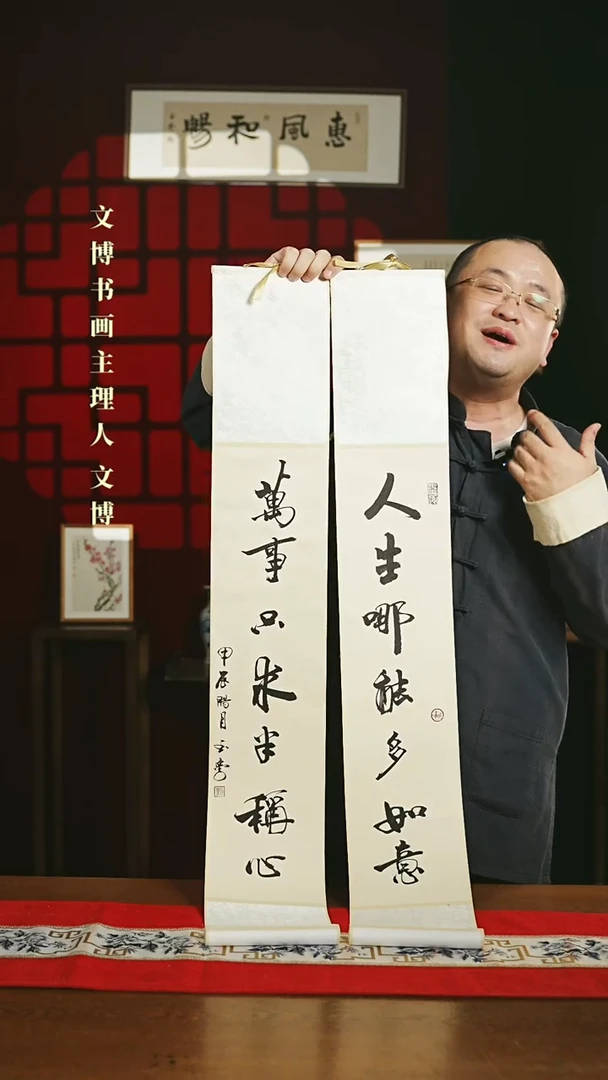 惠風和暢
文博书画主理人 文博
人生哪能多如意
萬事只求半稱心
甲辰腊月